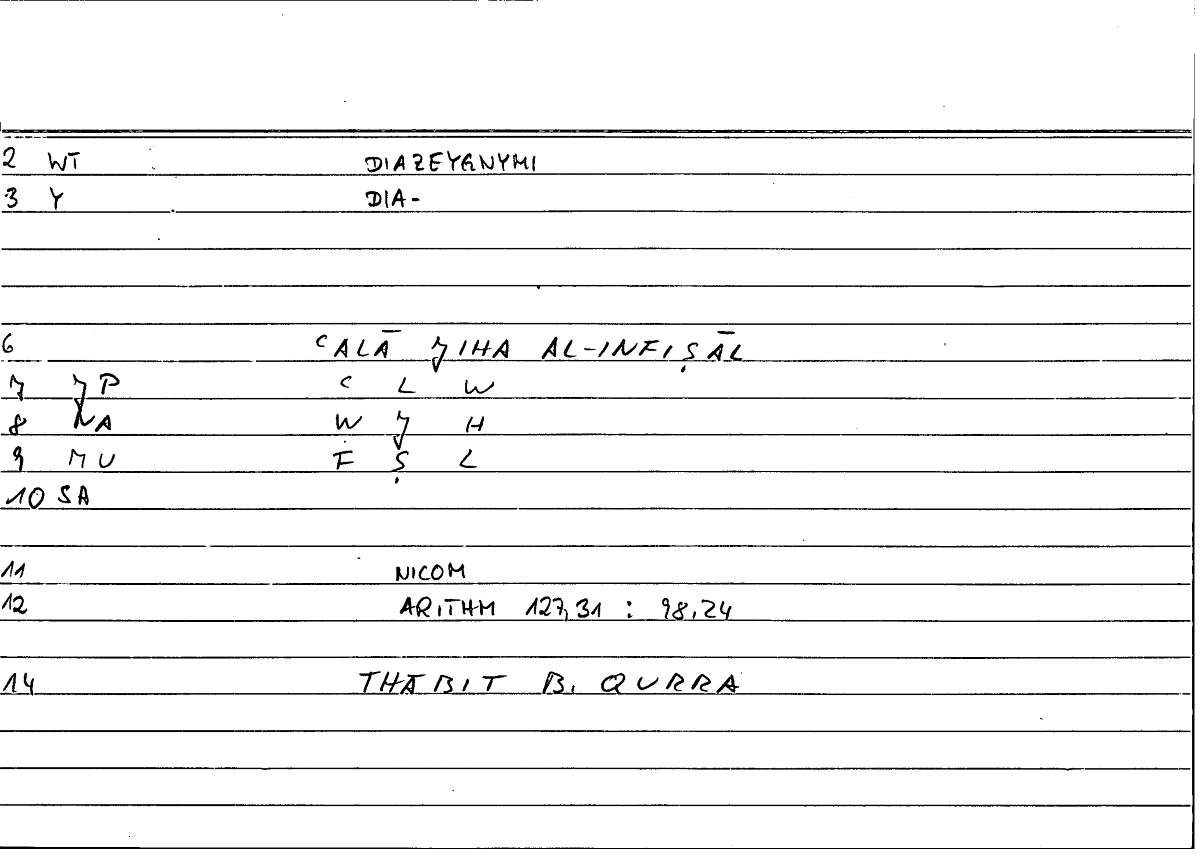 2 WT DIAZEYGNYMI
3 Y DIA-
6 ʿALĀ ǦIHA AL-INFIṢĀL
7 ǦP ʿ L W
8 NA W Ǧ H
9 MU F Ṣ L
10 SA
11 NICOM
12 ARITHM 127,31 : 98,24
14 THĀBIT B. QURRA